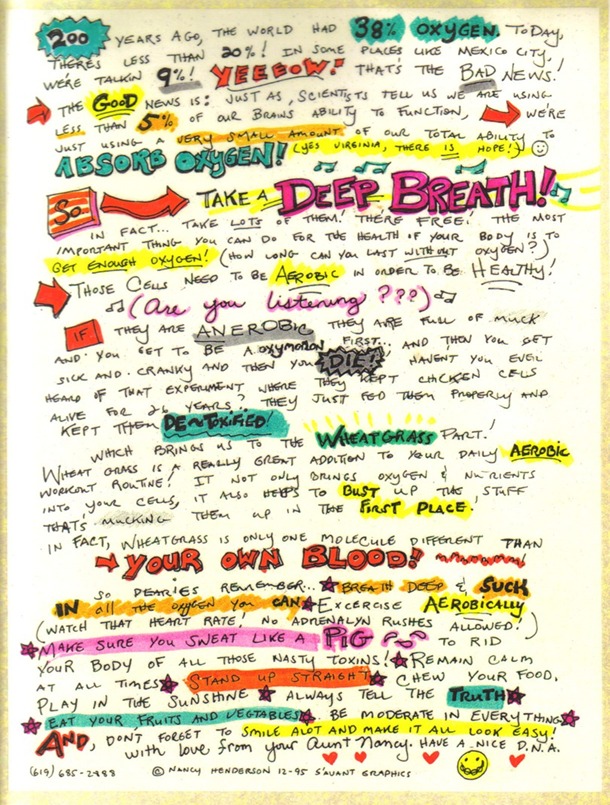 200 YEARS AGO, THE WORLD HAD 38% OXYGEN. TODAY,
THERES LESS THAN 20%! IN SOME PLACES LIKE MEXICO CITY,
WE'RE TALKIN 9%! YEEEOW! THAT'S THE BAD NEWS!
THE GOOD NEWS IS: JUST AS, SCIENTISTS TELL US WE ARE USING
LESS THAN 5% OF OUR BRAINS ABILITY TO FUNCTION, WE'RE
JUST USING A VERY SMALL AMOUNT OF OUR TOTAL ABILITY TO
ABSORB OXYGEN! (YES VIRGINIA, THERE IS HOPE!)
SO... TAKE A DEEP BREATH!
IN FACT... TAKE LOTS OF THEM! THERE FREE! THE MOST
IMPORTANT THING YOU CAN DO FOR THE HEALTH OF YOUR BODY IS TO
GET ENOUGH OXYGEN! (HOW LONG CAN YOU LAST WITHOUT OXYGEN?)
THOSE CELLS NEED TO BE AEROBIC IN ORDER TO BE HEALTHY!
(Are you listening???)
IF THEY ARE ANEROBIC THEY ARE FULL OF MUCK
AND YOU GET TO BE A OXYMORON FIRST... AND THEN YOU GET
SICK AND CRANKY AND THEN YOU DIE! HAVENT YOU EVER
HEARD OF THAT EXPERIMENT WHERE THEY KEPT CHICKEN CELLS
ALIVE FOR 26 YEARS? THEY JUST FED THEM PROPERLY AND
KEPT THEM DE~TOXIFIED!
WHICH BRINGS US TO THE WHEATGRASS PART!
WHEAT GRASS IS A REALLY GREAT ADDITION TO YOUR DAILY AEROBIC
WORKOUT ROUTINE! IT NOT ONLY BRINGS OXYGEN & NUTRIENTS
INTO YOUR CELLS, IT ALSO HELPS TO BUST UP THE STUFF
THAT'S MUCKING THEM UP IN THE FIRST PLACE.
IN FACT, WHEATGRASS IS ONLY ONE MOLECULE DIFFERENT THAN
YOUR OWN BLOOD!
SO DEARIES REMEMBER... BREATH DEEP & SUCK
IN all THE OXYGEN YOU CAN EXCERCISE AEROBICALLY
(WATCH THAT HEART RATE! NO ADRENALYN RUSHES ALLOWED!)
MAKE SURE YOU SWEAT LIKE A PIG TO RID
YOUR BODY OF ALL THOSE NASTY TOXINS! REMAIN CALM
AT ALL TIMES STAND UP STRAIGHT CHEW YOUR FOOD.
PLAY IN THE SUNSHINE ALWAYS TELL THE TRUTH
EAT YOUR FRUITS AND VEGTABLES BE MODERATE IN EVERYTHING
AND, DONT FORGET TO SMILE ALOT AND MAKE IT ALL LOOK EASY!
with love from your Aunt Nancy. HAVE A NICE D.N.A.
(619) 685-2888 © NANCY HENDERSON 12-95 S'AVANT GRAPHICS